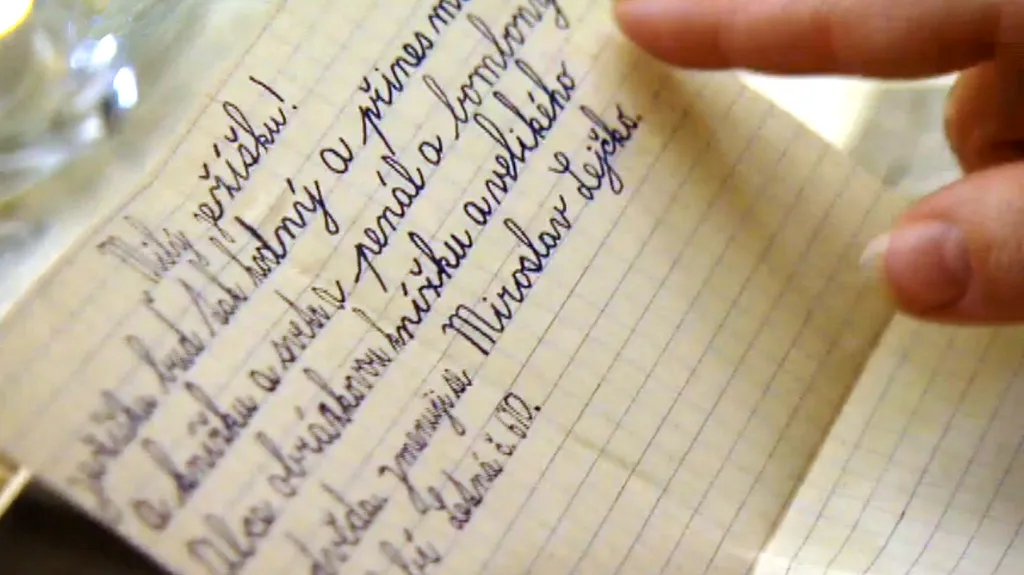 Milý ježíšku!
ježíšku buď tak hodný a přines m
a knížku a svetr penál a bombony
Alce obrázkovou knížku a velikého
jmenuji se Miroslav Lejčko.
Lesná č. 610.